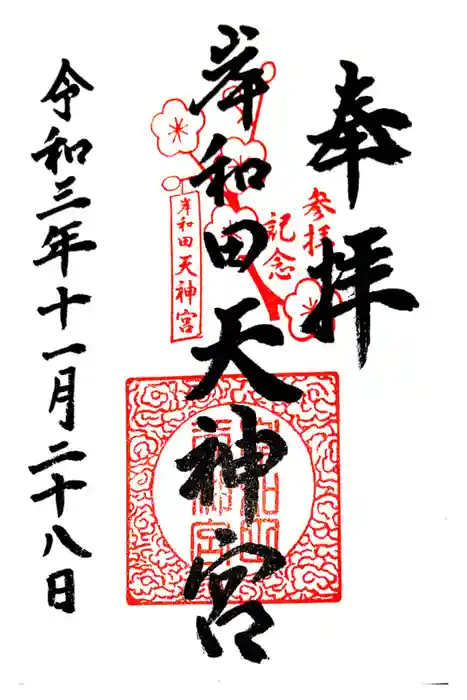 奉拝
参拝
記念
岸和田天神宮
岸和田天神宮
令和三年十一月二十八日